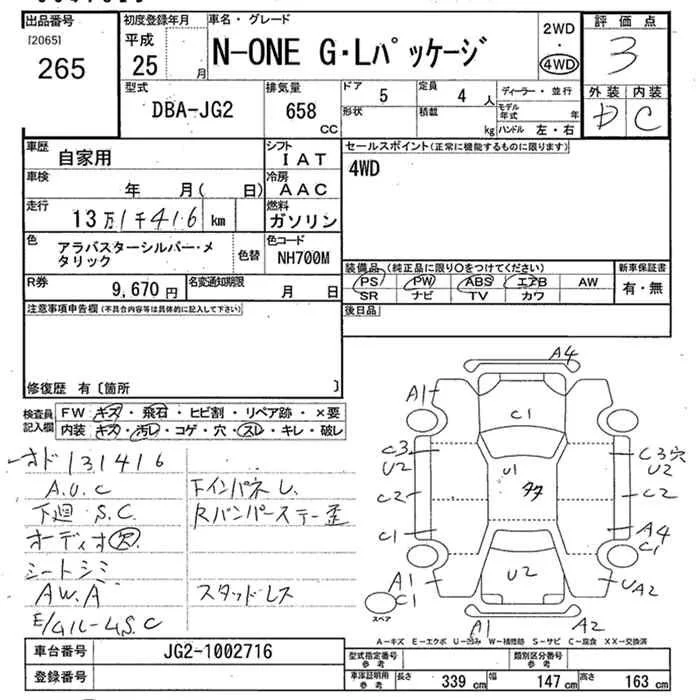 出品番号
[2065]
265
初度登録年月
平成
25 月
車名・グレード
N-ONE G・Lパッケージ
2WD
・
4WD
評価点
3
型式
DBA-JG2
排気量
658 CC
ドア 5
定員 4 人
形状
積載 kg
ディーラー・並行
モデル年式 年
ハンドル 左・右
外装 内装
D C
車歴
自家用
シフト
IAT
セールスポイント(正常に機能するものに限ります)
4WD
車検
年 月( 日)
冷房
AAC
走行
13万1千416 km
燃料
ガソリン
色
アラバスターシルバー・メタリック
色替
色コード
NH700M
R券
9,670 円
名変通知期限
月 日
装備品(純正品に限り○をつけてください)
PS PW ABS エアB AW
SR ナビ TV カワ
新車保証書
有・無
注意事項申告欄(不具合内容等は具体的に記入して下さい)
後日品
修復歴 有〔箇所 〕
検査員記入欄
FW キズ・飛石・ヒビ割・リペア跡・×要
内装 キズ・汚レ・コゲ・穴・スレ・キレ・破レ
オド131416
A.U.C
下廻 S.C.
オーディオ欠
シートシミ
AW.A
E/Gルーム S.C
Fインパネし
Rバンパーステー歪
スタッドレス
A4
A1
C1
C3
U2
C2
C1
A1
C1
U1
U2
C3穴
U2
C2
A4
C1
UA2
A1
A2
スペア
A-キズ E-エクボ U-凹み W-補修跡 S-サビ C-腐食 XX-交換済
車台番号
JG2-1002716
登録番号
型式指定番号 参考
類別区分番号 参考
車検証明用 参考
長さ 339 cm
幅 147 cm
高さ 163 cm